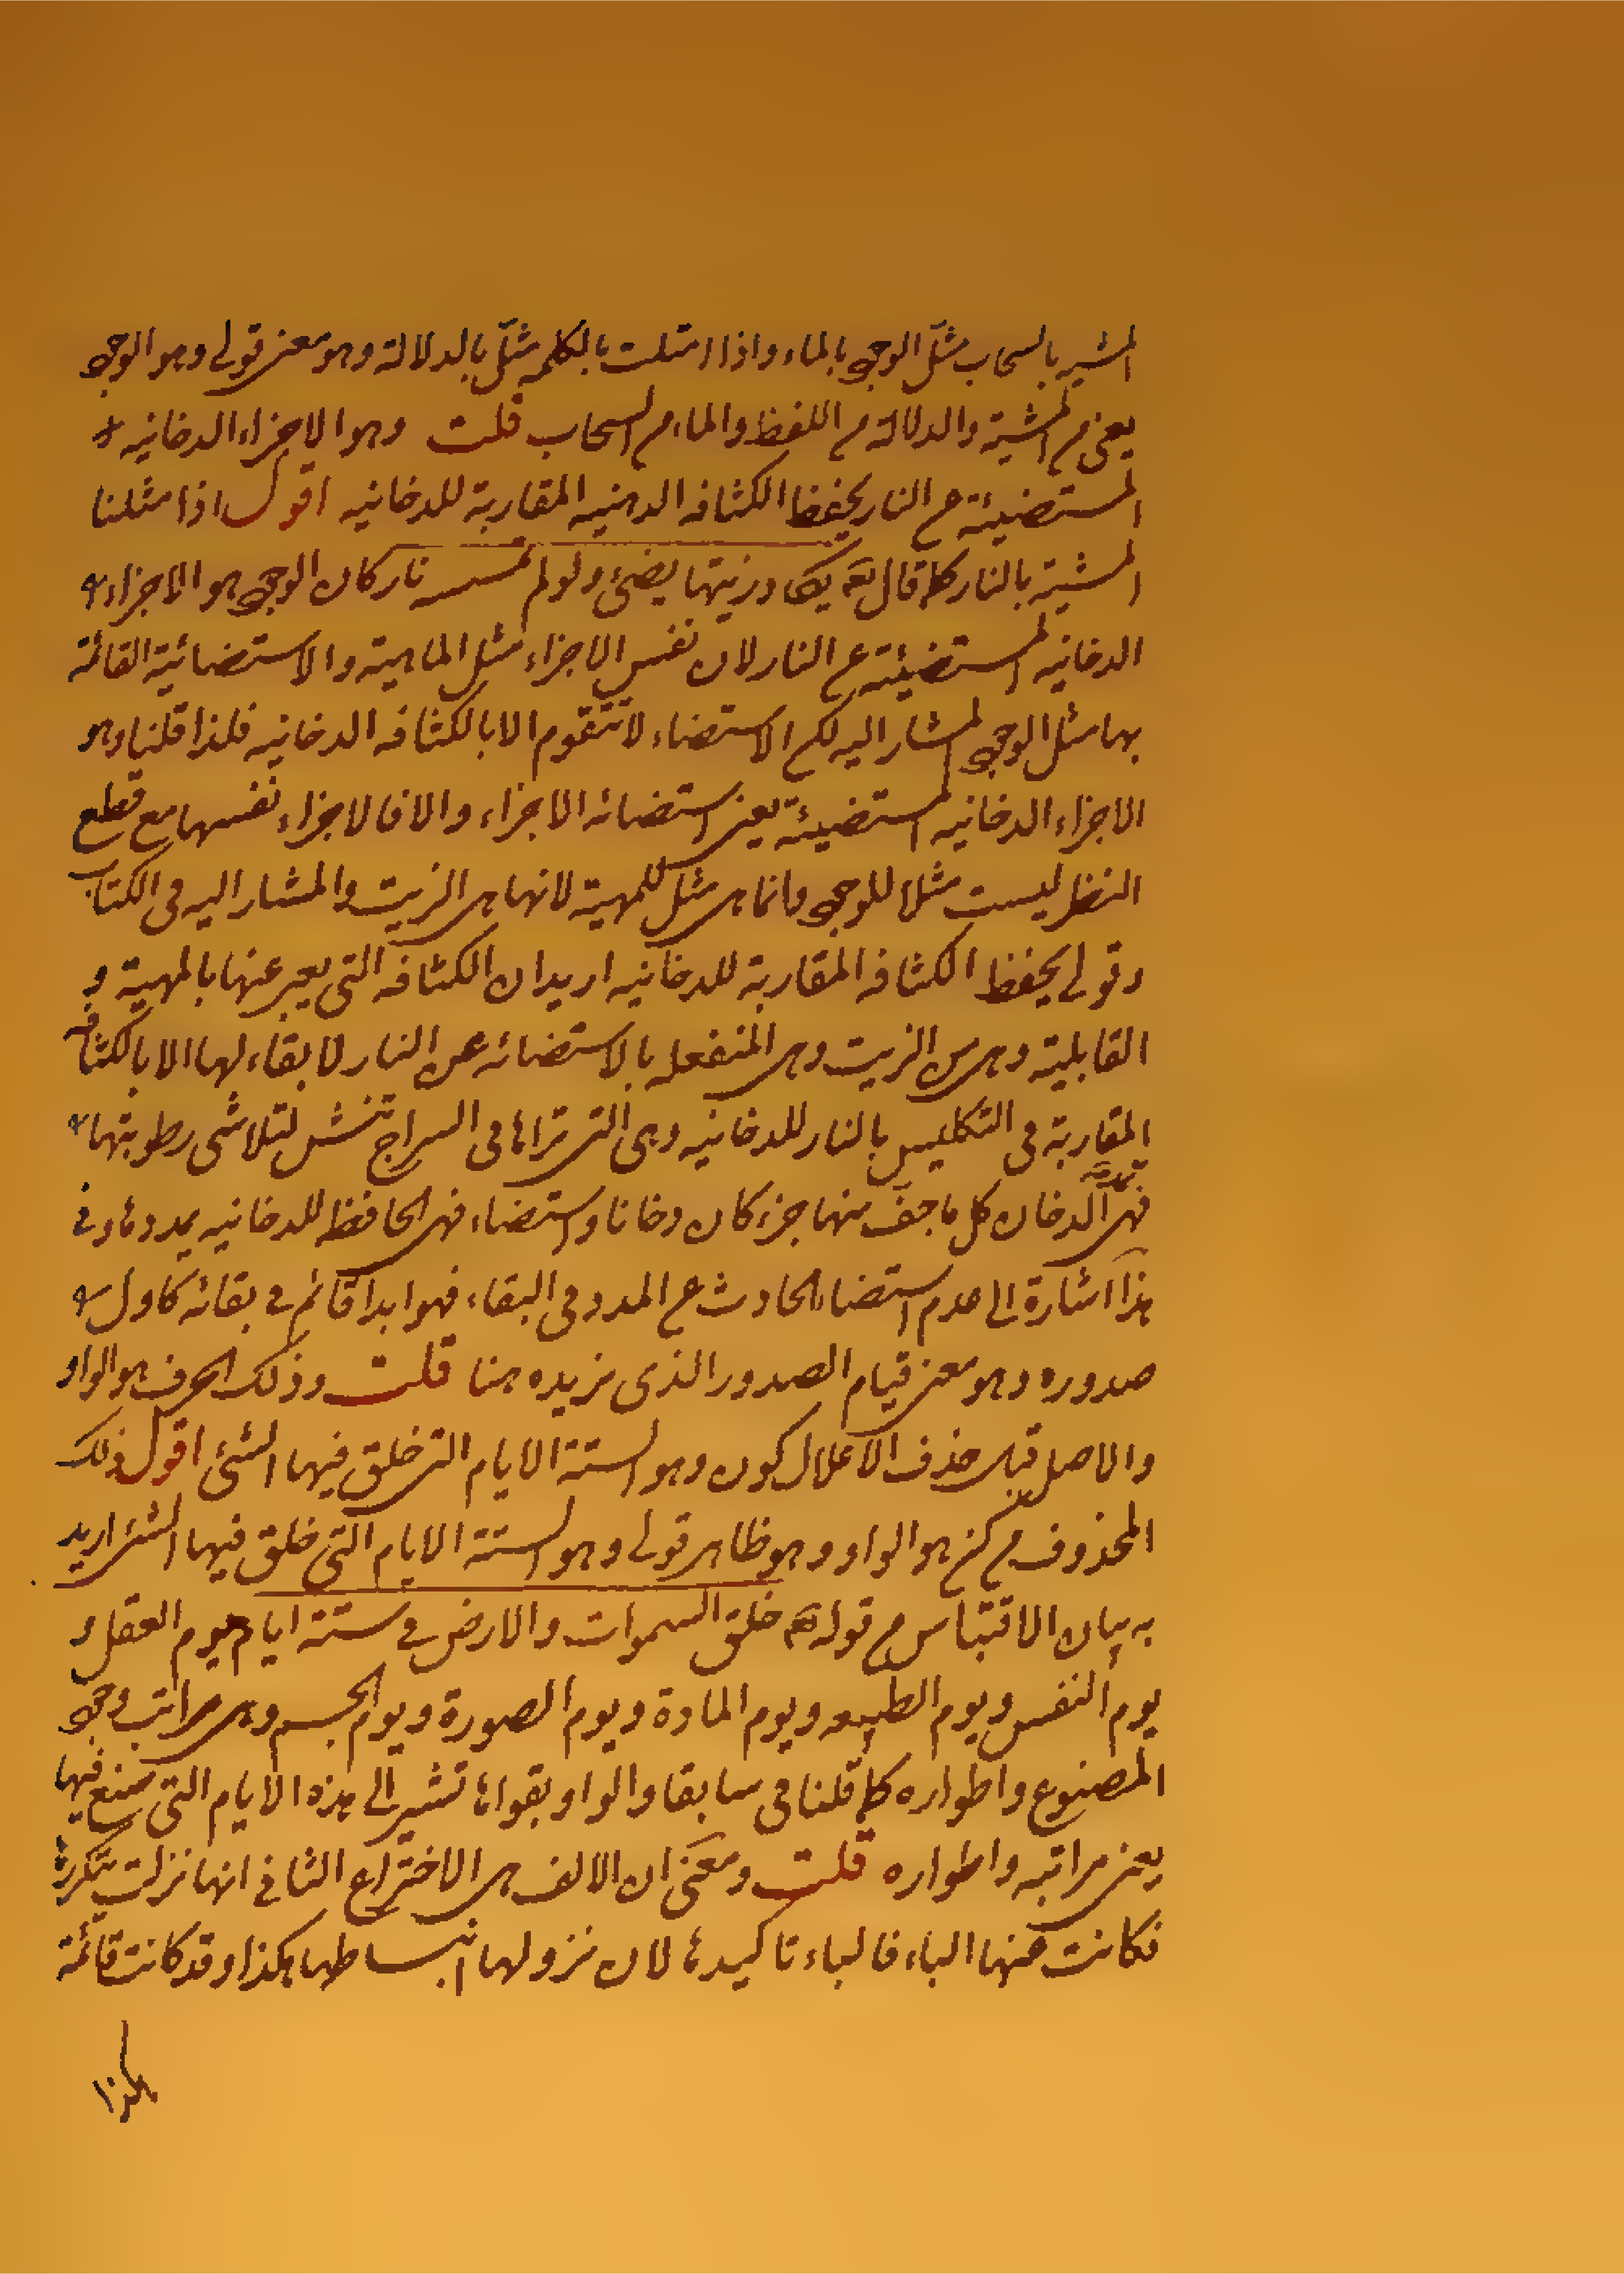 المشية بالسحاب مثل الوجود بالماء واذا مثلت بالكلمه مثل بالدلالة وهو معنى قولى وهو الوجود
يعنى من المشية والدلالة من اللفظ والماء من السحاب قلت وهو الاجزاء الدخانيه
المستضيئة عن النار بحفظ الكثافه الدهنيه المقاربة للدخانيه اقول اذا مثلنا
المشية بالنار كما قال تع يكاد زيتها يضئ ولو لم تمسسه نار كان الوجود هو الاجزاء
الدخانيه المستضيئة عن النار لان نفس الاجزاء مثل الماهية والاستضائية القائمة
بها مثل الوجود المشار اليه لكن الاستضاء لا تتقوم الا بالكثافه الدخانيه فلذا قلنا وهو
الاجزاء الدخانيه المستضيئة يعنى استضائه الاجزاء والا فالاجزاء نفسها مع قطع
النظر ليست مثلا للوجود وانما هى مثل للمهية لانها هى الزيت والمشار اليه فى الكتاب
وقولى بحفظ الكثافه المقاربة للدخانيه اريد ان الكثافه التى يعبر عنها بالمهية و
القابلية وهى من الزيت وهى المنفعله بالاستضائه عن النار لا بقاء لها الا بالكثافه
المقاربة فى التكليس بالنار للدخانيه وهى التى تراها فى السراج تنش لتلاشى رطوبتها
فهى الدخان كل ما جف منها جزء كان دخانا واستضاء فهى الحافظ للدخانيه بمددها وفى
هذا اشارة الى عدم استضناء الحادث عن المدد فى البقاء فهو ابدا قائم فى بقائه كاول
صدوره وهو معنى قيام الصدور الذى نريده هنا قلت وذلك الحرف هو الواو
والاصل قبل حذف الاعلال كون وهو الستة الايام التى خلق فيها الشئ اقول ذلك
المحذوف من كن هو الواو وهو ظاهر قولى وهو الستة الايام التى خلق فيها الشئ اريد
به بيان الاقتباس من قوله تع خلق السموات والارض فى ستة ايام يوم العقل و
يوم النفس ويوم الطبيعه ويوم المادة ويوم الصورة ويوم الجسم وهى مراتب وجود
المصنوع واطواره كما قلنا فى سابقا والواو بقواها تشير الى هذه الايام التى صنع فيها
يعنى مراتبه واطواره قلت ومعنى ان الالف هى الاختراع الثانى انها نزلت بتكررها
فكانت عنها الباء فالباء تاكيدها لان نزولها انبساطها هكذا وقد كانت قائمة
هكذا